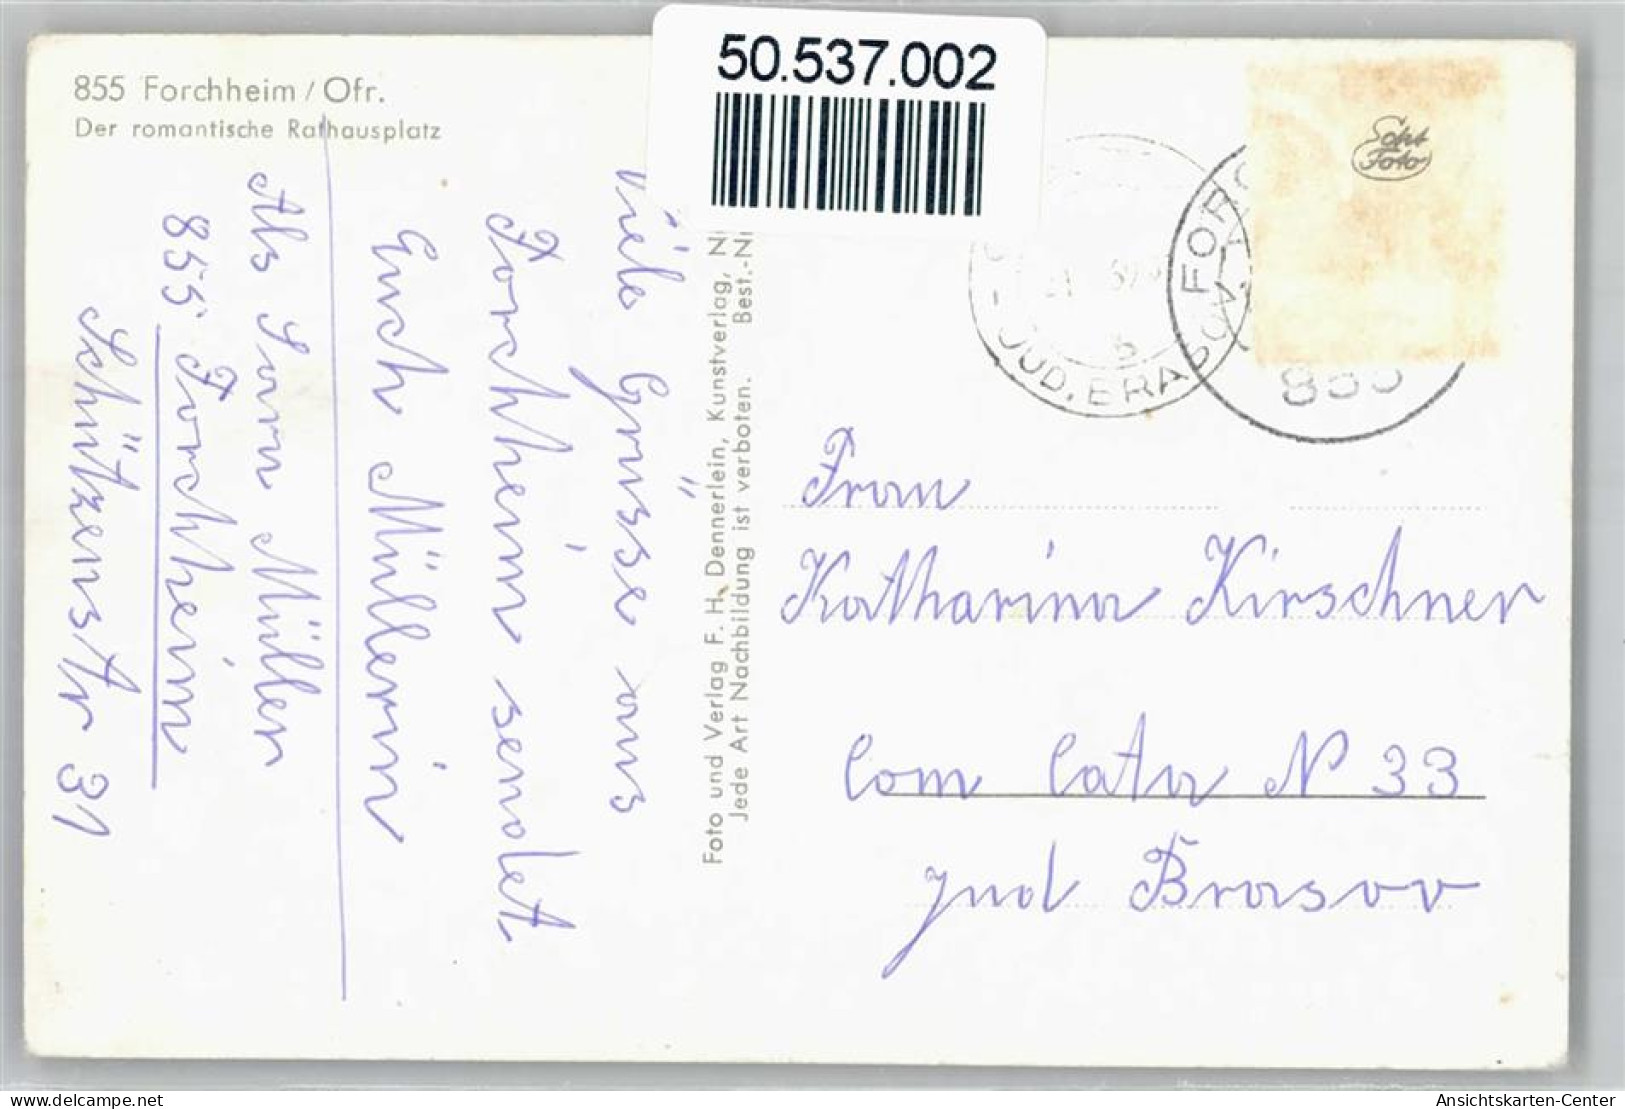 50.537.002
855 Forchheim / Ofr.
Der romantische Rathausplatz
Viele Grüsse aus
Forchheim sendet
Euch Müllerin
Abs Sara Müller
855 Forchheim
Schützenstr 31
Foto und Verlag F. H. Dennerlein, Kunstverlag, N
Jede Art Nachbildung ist verboten. Best.-N
Echt
Foto
FORC
855
JUD. BRASOV
b
Frau
Katharina Kirschner
Com Cata N 33
Jud Brasov
www.ansichtskarten-center.de
Ansichtskarten-Center